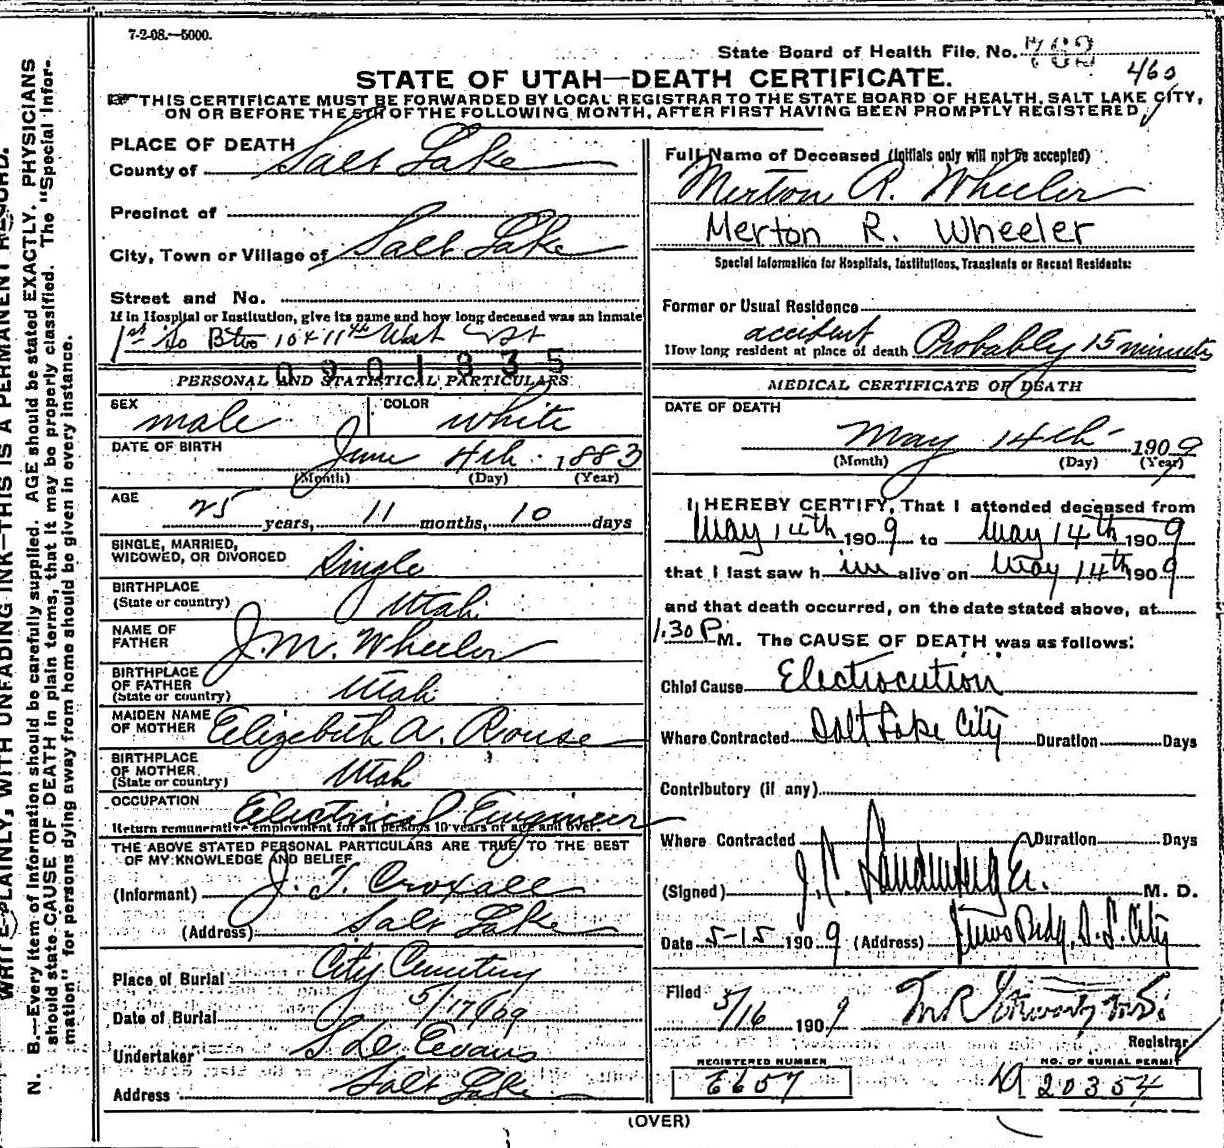 7-2-08.—5000.
State Board of Health File. No.
460
STATE OF UTAH—DEATH CERTIFICATE.
THIS CERTIFICATE MUST BE FORWARDED BY LOCAL REGISTRAR TO THE STATE BOARD OF HEALTH, SALT LAKE CITY,
ON OR BEFORE THE 5TH OF THE FOLLOWING MONTH, AFTER FIRST HAVING BEEN PROMPTLY REGISTERED
PLACE OF DEATH
County of Salt Lake
Precinct of
City, Town or Village of Salt Lake
Street and No.
If in Hospital or Institution, give its name and how long deceased was an inmate
1st So Btw 10 & 11th West St
0901835
PERSONAL AND STATISTICAL PARTICULARS
SEX male COLOR white
DATE OF BIRTH June 4th 1883
(Month) (Day) (Year)
AGE 25 years, 11 months, 10 days
SINGLE, MARRIED,
WIDOWED, OR DIVORCED Single
BIRTHPLACE
(State or country) Utah
NAME OF
FATHER J. M. Wheeler
BIRTHPLACE
OF FATHER
(State or country) Utah
MAIDEN NAME
OF MOTHER Elizabeth A. Rouse
BIRTHPLACE
OF MOTHER
(State or country) Utah
OCCUPATION Electrical Engineer
Return remunerative employment for all persons 10 years of age and over.
THE ABOVE STATED PERSONAL PARTICULARS ARE TRUE TO THE BEST
OF MY KNOWLEDGE AND BELIEF
(Informant) J. T. Croxall
(Address) Salt Lake
Place of Burial City Cemetery
Date of Burial 5/17/09
Undertaker Evans
Address Salt Lake
Full Name of Deceased (Initials only will not be accepted)
Merton R. Wheeler
Merton R. Wheeler
Special Information for Hospitals, Institutions, Transients or Recent Residents:
Former or Usual Residence
accident
How long resident at place of death Probably 15 minutes
MEDICAL CERTIFICATE OF DEATH
DATE OF DEATH
May 14th 1909
(Month) (Day) (Year)
I HEREBY CERTIFY, That I attended deceased from
May 14th 1909 to May 14th 1909
that I last saw him alive on May 14th 1909
and that death occurred, on the date stated above, at
1.30 P M. The CAUSE OF DEATH was as follows:
Chief Cause Electrocution
Where Contracted Salt Lake City Duration Days
Contributory (if any)
Where Contracted Duration Days
(Signed) J. C. M. D.
Date 5-15 1909 (Address) S. L. City
Filed 5/16 1909
Registrar
REGISTERED NUMBER
E657
NO. OF BURIAL PERMIT
A 20354
(OVER)
WRITE PLAINLY, WITH UNFADING INK—THIS IS A PERMANENT RECORD.
N. B.—Every item of information should be carefully supplied. AGE should be stated EXACTLY. PHYSICIANS
should state CAUSE OF DEATH in plain terms, that it may be properly classified. The "Special Infor-
mation" for persons dying away from home should be given in every instance.